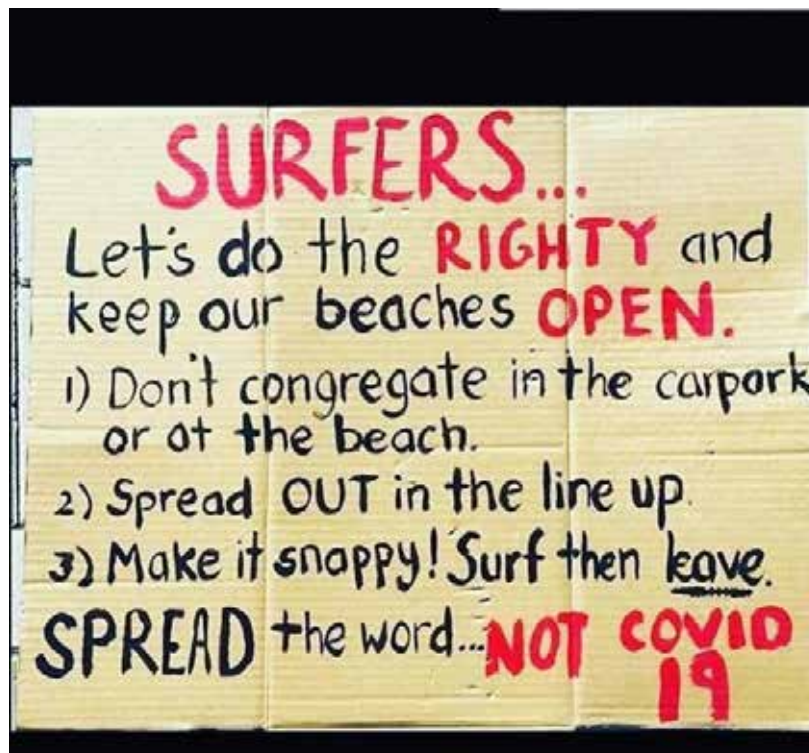 SURFERS...
Let's do the RIGHTY and
keep our beaches OPEN.
1) Don't congregate in the carpark
or at the beach.
2) Spread OUT in the line up.
3) Make it snappy! Surf then leave.
SPREAD the word... NOT COVID
19